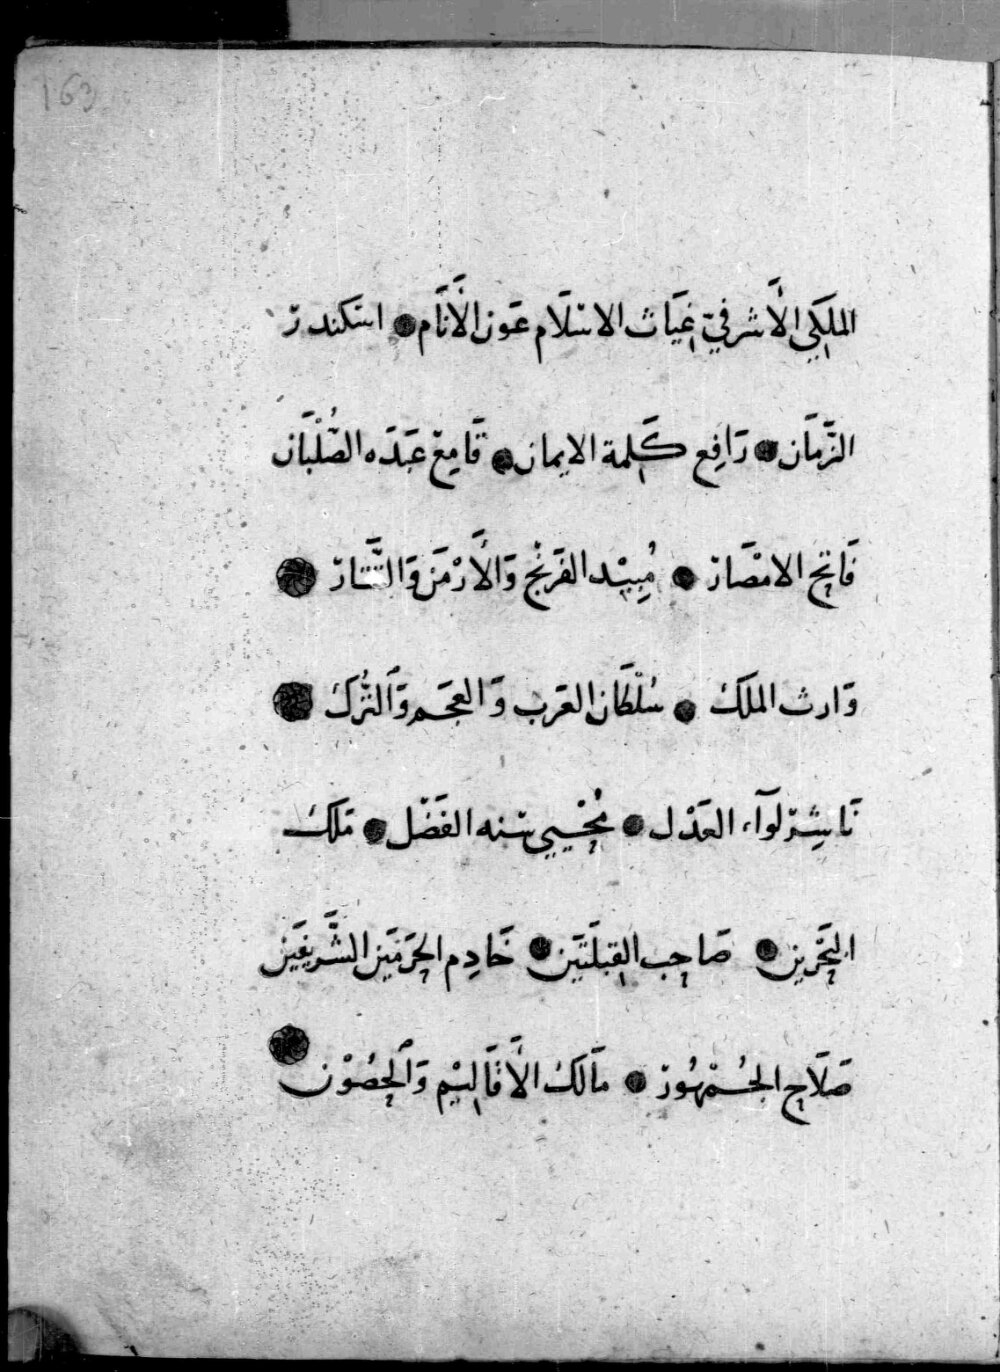 163
الملَكِي الأَشرفيّ غِيَاث الاسْلَام عَون الأَنَام اسكندر
الزَّمَان رَافِع كَلِمة الايمان قَامِع عَبَدَه الصُّلْبَان
فَاتِح الامْصَار مُبِيْد الفَرَنْج وَالأَرْمَن وَالتَّتَار
وَارث الملك سُلْطَان العَرب وَالعجَم وَالتُّرك
نَاشِر لوآء العَدْل مُحْيِي سنه الفَضْل مَلك
البَحْرين صَاحِب القِبلَتَين خَادِم الحَرَمَين الشَّريفَين
صَلَاح الجُمْهُور مَالك الأَقَالِيْم وَالحُصُوْن